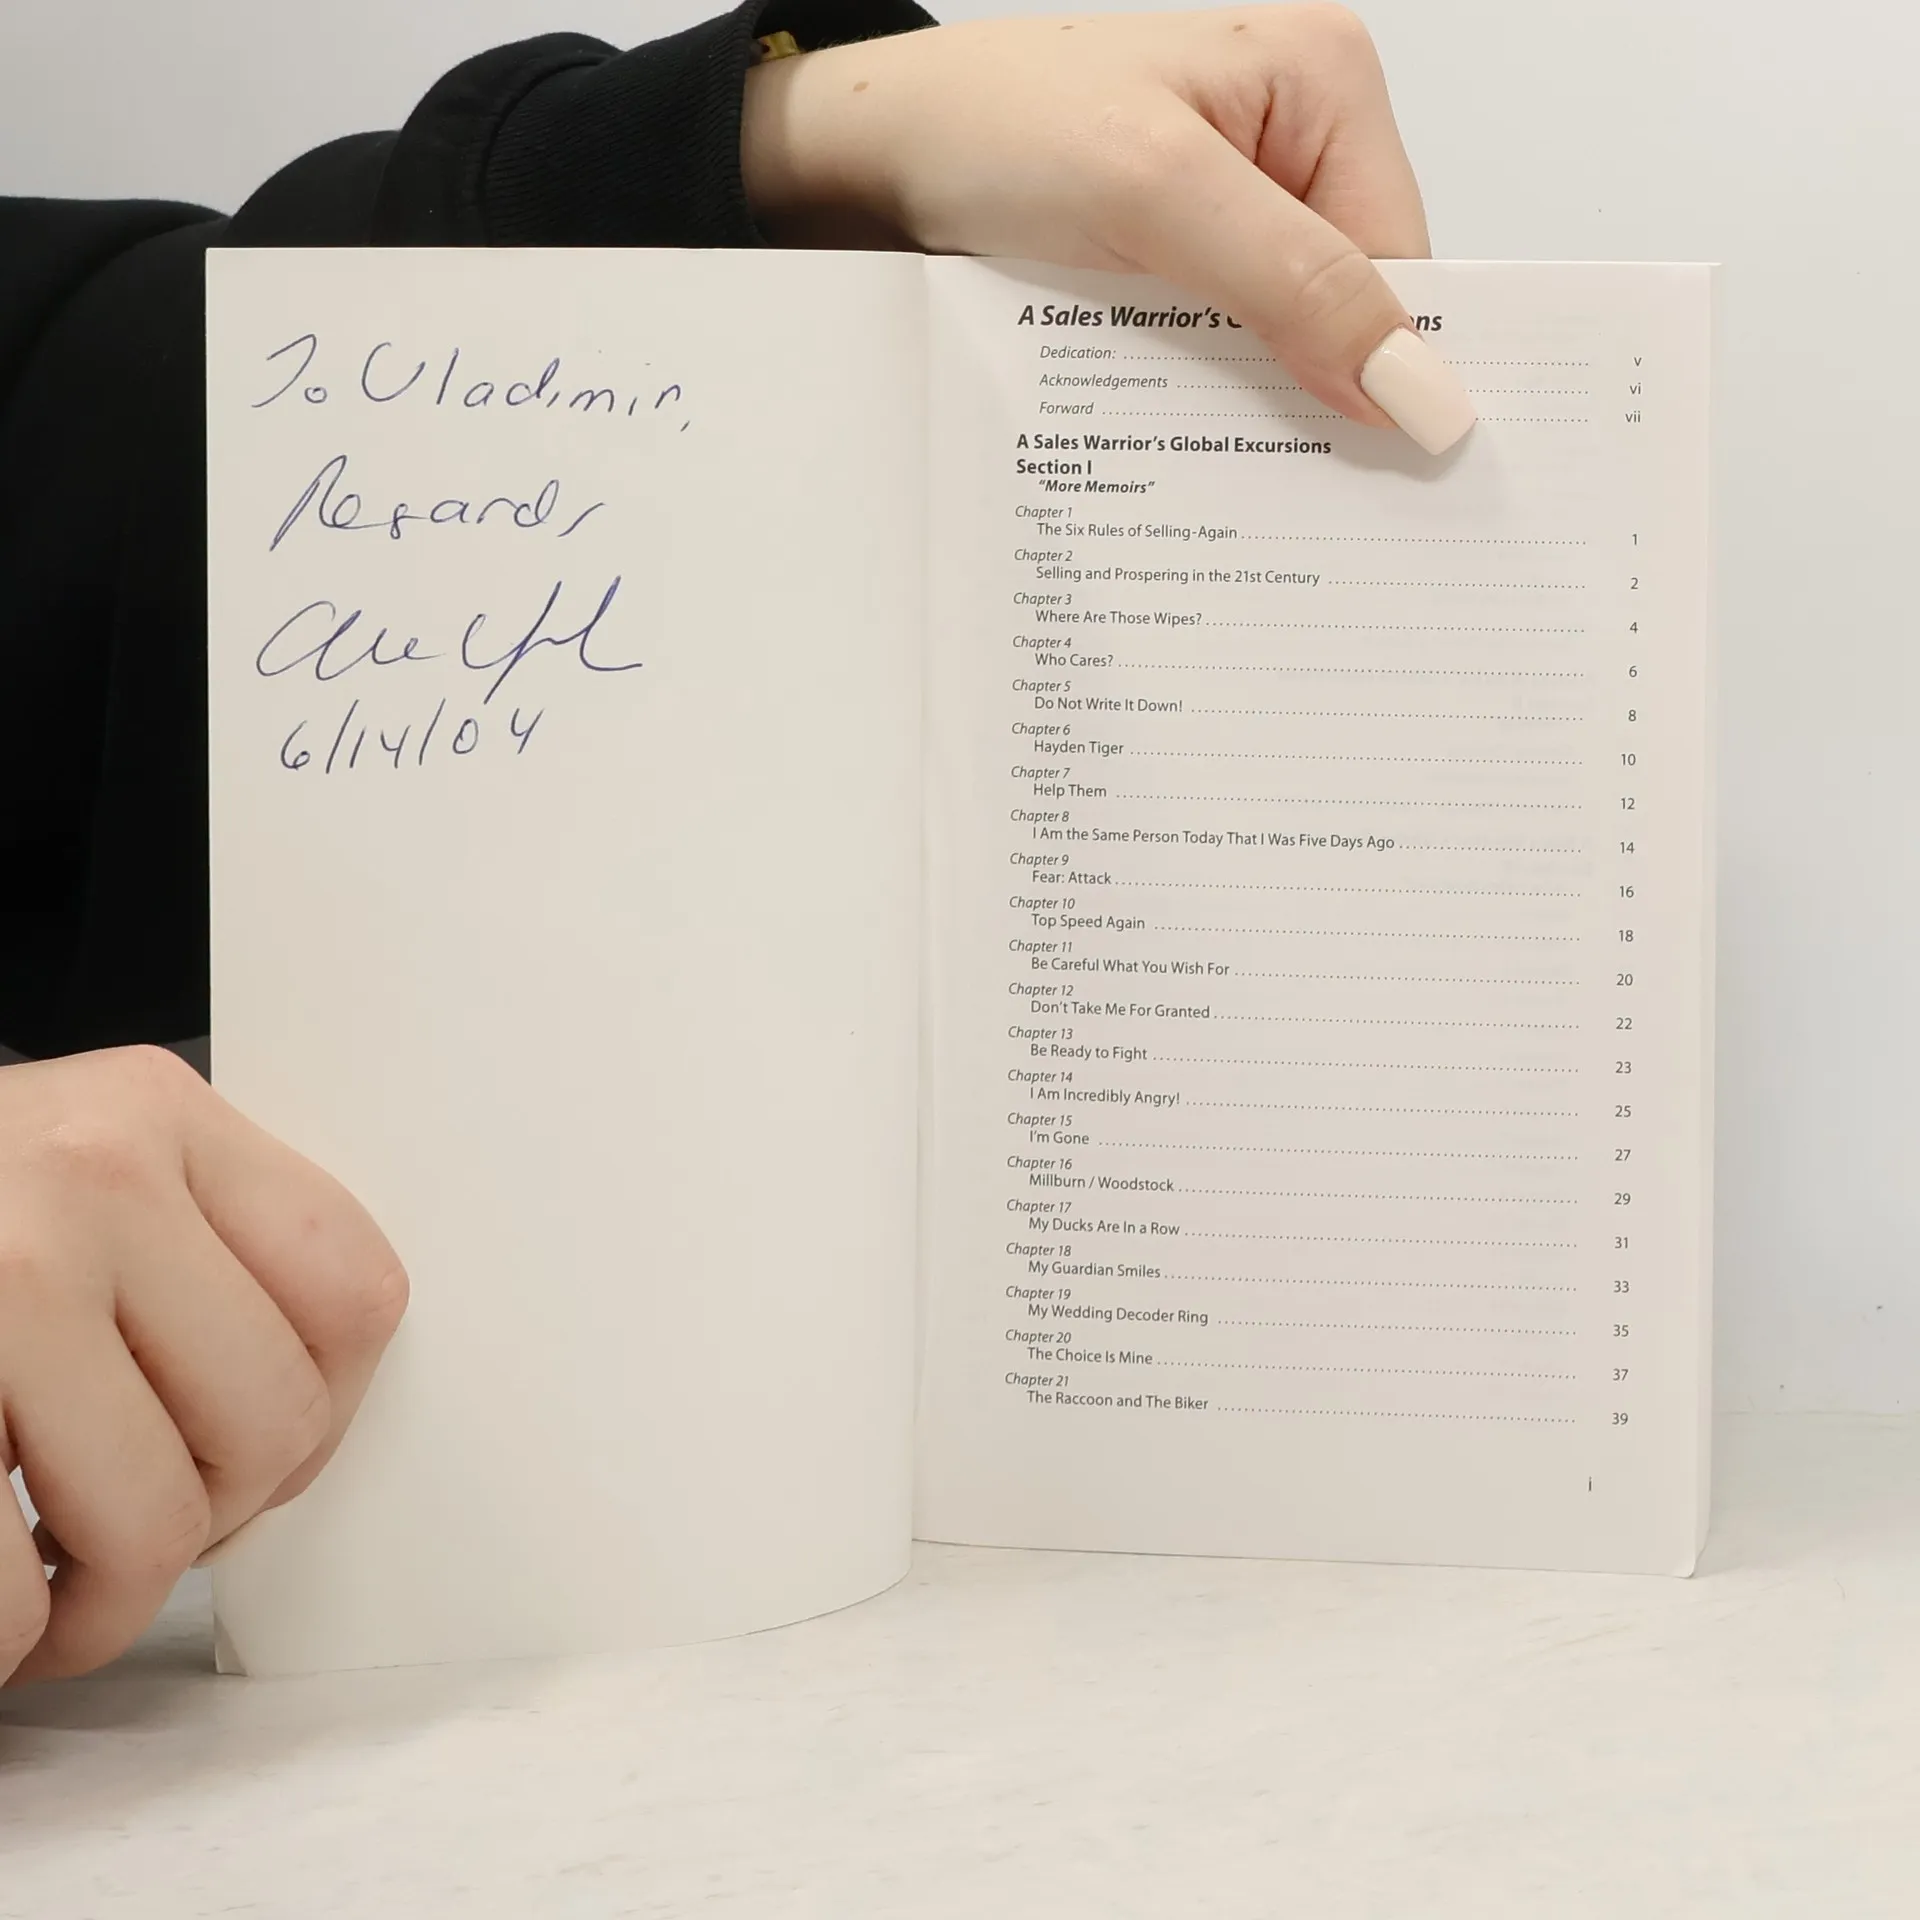 To Vladimir,
Regards
6/14/04
A Sales Warrior's
Dedication: v
Acknowledgements vi
Forward vii
A Sales Warrior's Global Excursions
Section I
"More Memoirs"
Chapter 1
The Six Rules of Selling-Again 1
Chapter 2
Selling and Prospering in the 21st Century 2
Chapter 3
Where Are Those Wipes? 4
Chapter 4
Who Cares? 6
Chapter 5
Do Not Write It Down! 8
Chapter 6
Hayden Tiger 10
Chapter 7
Help Them 12
Chapter 8
I Am the Same Person Today That I Was Five Days Ago 14
Chapter 9
Fear: Attack 16
Chapter 10
Top Speed Again 18
Chapter 11
Be Careful What You Wish For 20
Chapter 12
Don't Take Me For Granted 22
Chapter 13
Be Ready to Fight 23
Chapter 14
I Am Incredibly Angry! 25
Chapter 15
I'm Gone 27
Chapter 16
Millburn / Woodstock 29
Chapter 17
My Ducks Are In a Row 31
Chapter 18
My Guardian Smiles 33
Chapter 19
My Wedding Decoder Ring 35
Chapter 20
The Choice Is Mine 37
Chapter 21
The Raccoon and The Biker 39
i